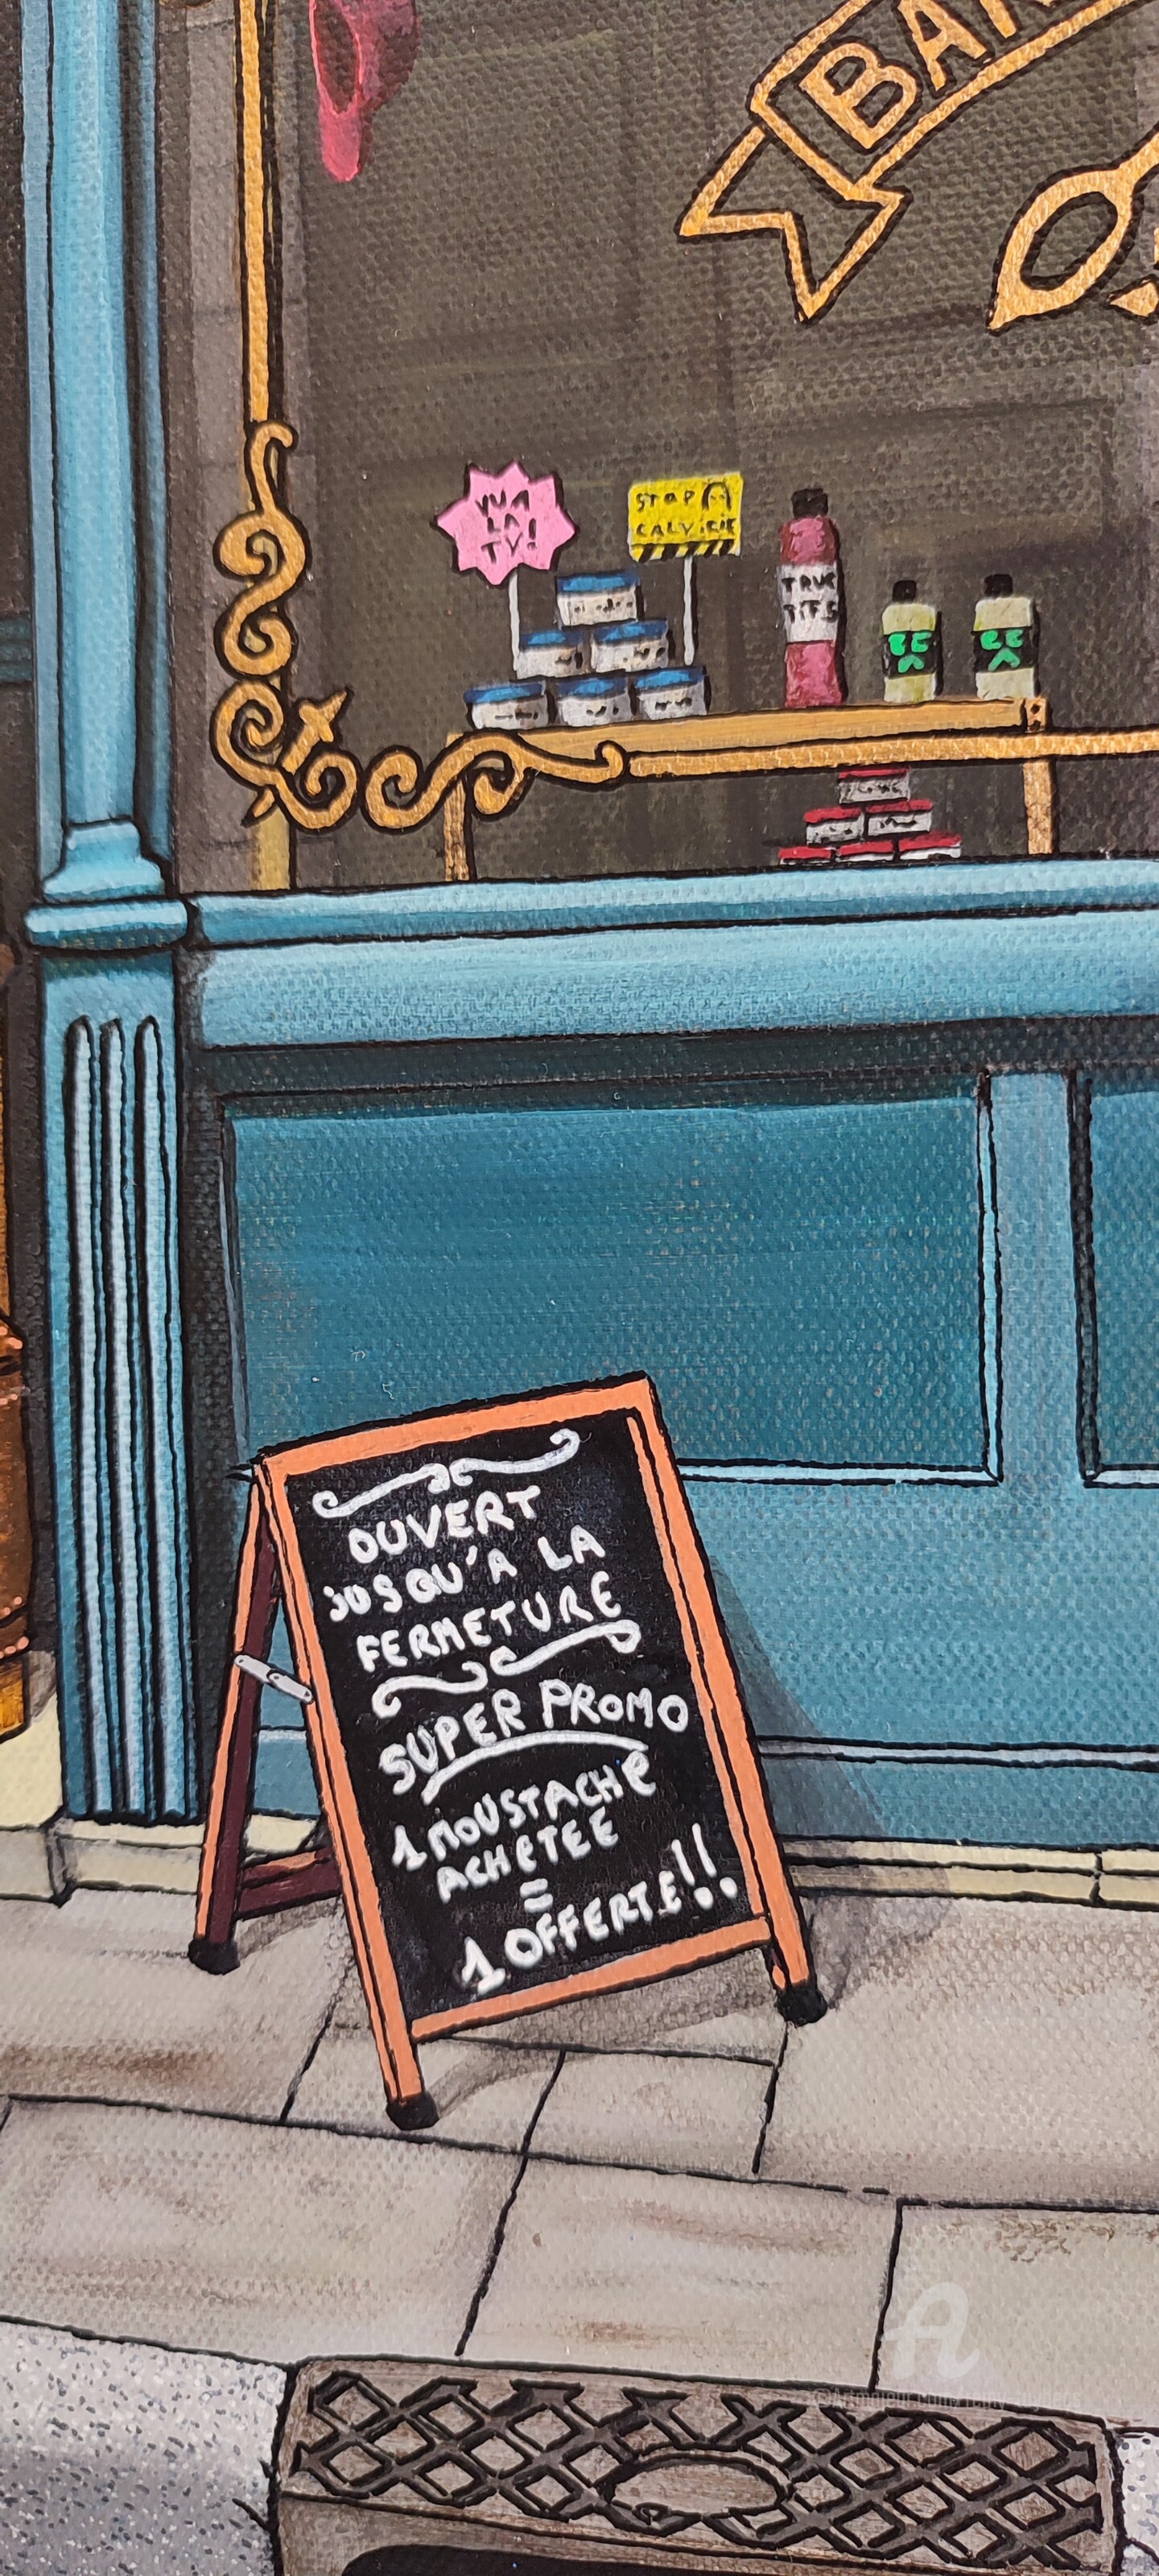 BAR
VUA
LA
TV!
STOP
CALVICIE
TRUC
TIFS
OUVERT
JUSQU'A LA
FERMETURE
SUPER PROMO
1 MOUSTACHE
ACHETEE
=
1 OFFERTE!!